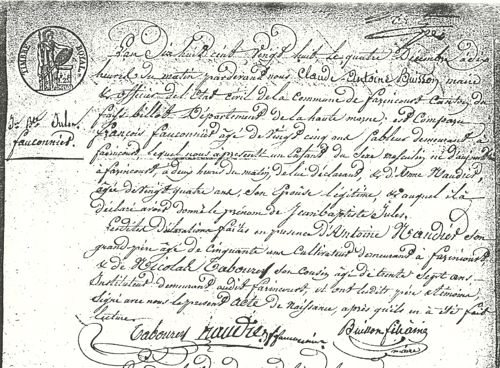 TIMBRE ROYAL
L'an Dix huit cent Vingt huit, Le quatre Décembre à dix
heures du matin pardevant nous Claude Antoine Buisson, maire
& officier de l'Etat Civil de la Commune de farincourt Canton de
fays billot Département de la haute marne: est Comparu
françois fauconnier âgé de Vingt cinq ans Sableur demeurant à
farincourt, lequel nous a présenté un Enfant du Sexe masculin né
à farincourt, à deux heures du matin, de lui déclarant, & d'Anne Naudier,
âgée de Vingt quatre ans, Son Epouse légitime, & auquel il a
déclaré avoir donné le prénom de Jean baptiste Jules.
Lesdites Déclarations faites en présence d'Antoine Naudier Son
grand père âgé de Cinquante un Cultivateur demeurant à farincourt
& de Nicolas Tabourey Son Cousin âgé de trente Sept ans
Instituteur demeurant audit farincourt, et ont lesdits père & témoins
Signé avec nous le présent acte de Naissance, après qu'il en a été fait
lecture
Jn Bte Jules
fauconnier
Tabourey Naudier F fauconnier Buisson
maire